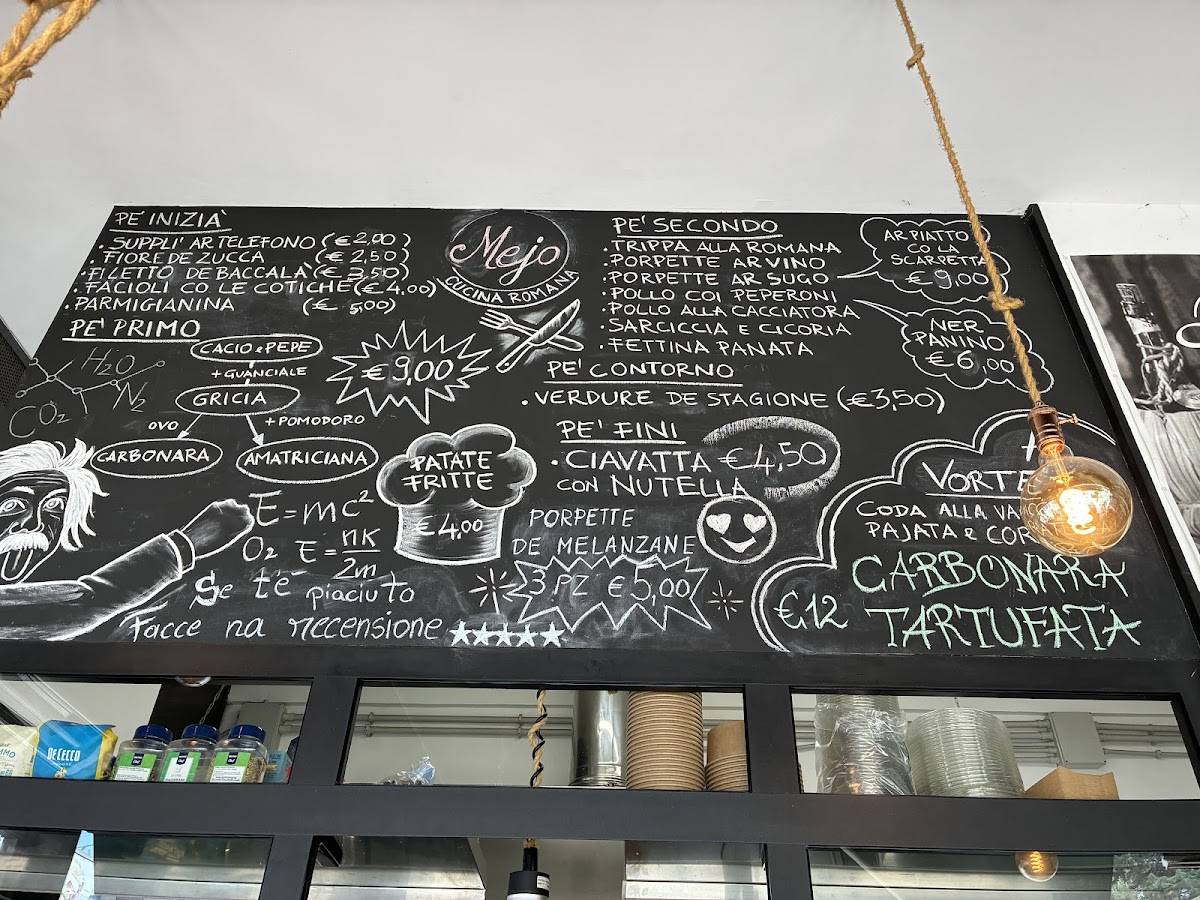 PE' INIZIÀ
· SUPPLI' AR TELEFONO (€ 2,00)
· FIORE DE ZUCCA (€ 2,50)
· FILETTO DE BACCALÀ (€ 3,50)
· FACIOLI CO LE COTICHE (€ 4,00)
· PARMIGIANINA (€ 5,00)
PE' PRIMO
CACIO e PEPE
+ GUANCIALE
GRICIA
OVO
+ POMODORO
CARBONARA
AMATRICIANA
€ 9,00
H2O
N2
CO2
E = mc²
O2 E = nk/2m
Se t'è piaciuto
Facce na recensione ★★★★★
Mejo
CUCINA ROMANA
PATATE
FRITTE
€ 4,00
PE' SECONDO
· TRIPPA ALLA ROMANA
· PORPETTE AR VINO
· PORPETTE AR SUGO
· POLLO COI PEPERONI
· POLLO ALLA CACCIATORA
· SARCICCIA E CICORIA
· FETTINA PANATA
AR PIATTO
CO LA
SCARPETTA
€ 9,00
NER
PANINO
€ 6,00
PE' CONTORNO
· VERDURE DE STAGIONE (€3,50)
PE' FINI
· CIAVATTA €4,50
CON NUTELLA
PORPETTE
DE MELANZANE
3 PZ € 5,00
CODA ALLA
PAJATA e
CARBONARA
€12 TARTUFATA
DE CECCO